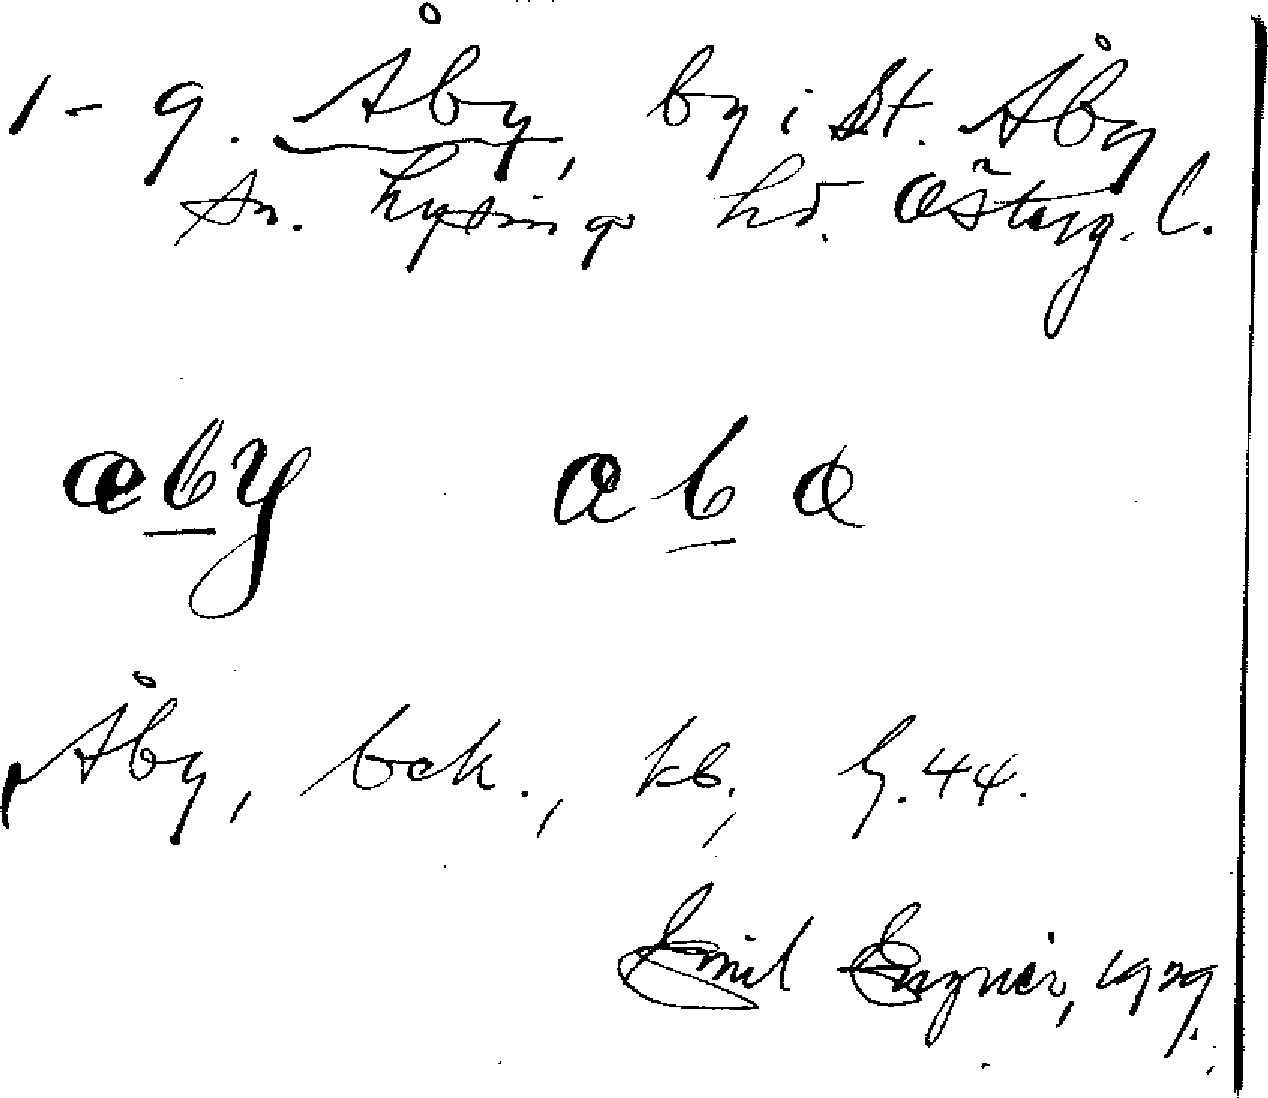 1-9. Åby, by i St. Åby
sn. Lysings hd. Österg. l.
aby aba
Åby, bek., kb, h. 44.
Emil Egnér, 1929.